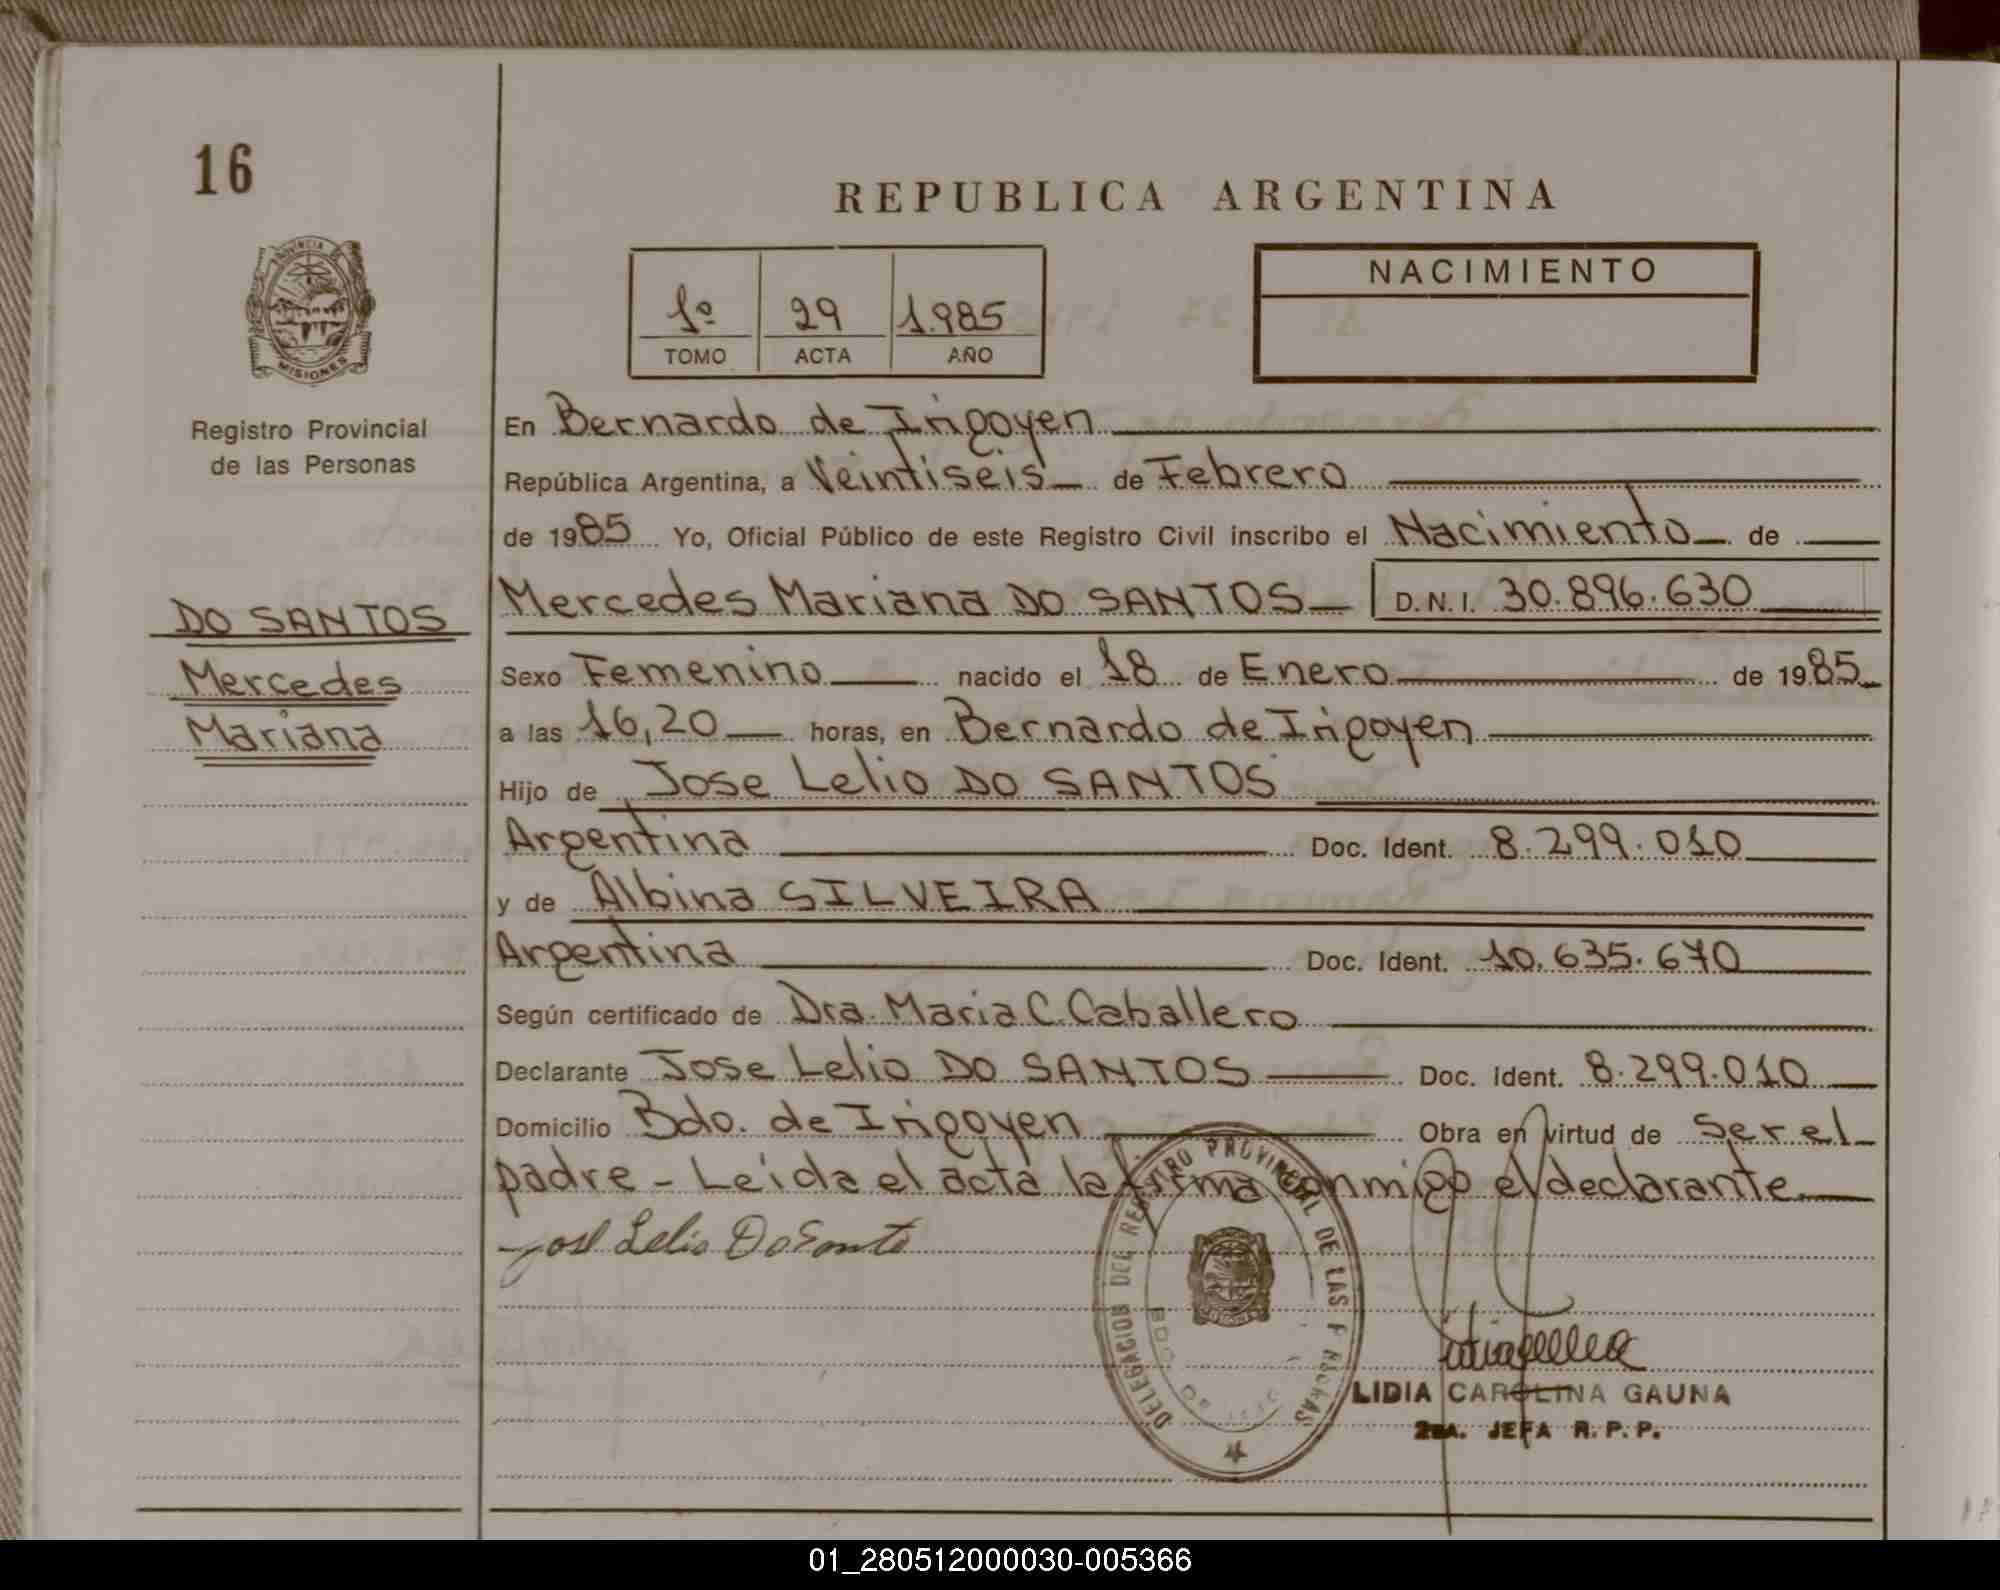 16
REPUBLICA ARGENTINA
PROVINCIA DE
MISIONES
Registro Provincial
de las Personas
1º 29 1.985
TOMO ACTA AÑO
NACIMIENTO
DO SANTOS
Mercedes
Mariana
En Bernardo de Irigoyen
República Argentina, a Veintiseis de Febrero
de 1985 Yo, Oficial Público de este Registro Civil inscribo el Nacimiento de
Mercedes Mariana DO SANTOS D.N.I. 30.896.630
Sexo Femenino nacido el 18 de Enero de 1985
a las 16,20 horas, en Bernardo de Irigoyen
Hijo de Jose Lelio DO SANTOS
Argentina Doc. Ident. 8.299.010
y de Albina SILVEIRA
Argentina Doc. Ident. 10.635.670
Según certificado de Dra. Maria C. Caballero
Declarante Jose Lelio DO SANTOS Doc. Ident. 8.299.010
Domicilio Bdo. de Irigoyen Obra en virtud de ser el
padre - Leída el acta la firma conmigo el declarante.
José Lelio Do Santo
DELEGACION DEL REGISTRO PROVINCIAL DE LAS PERSONAS
BDO. DE
MISIONES
LIDIA CAROLINA GAUNA
2DA. JEFA R.P.P.
01_280512000030-005366